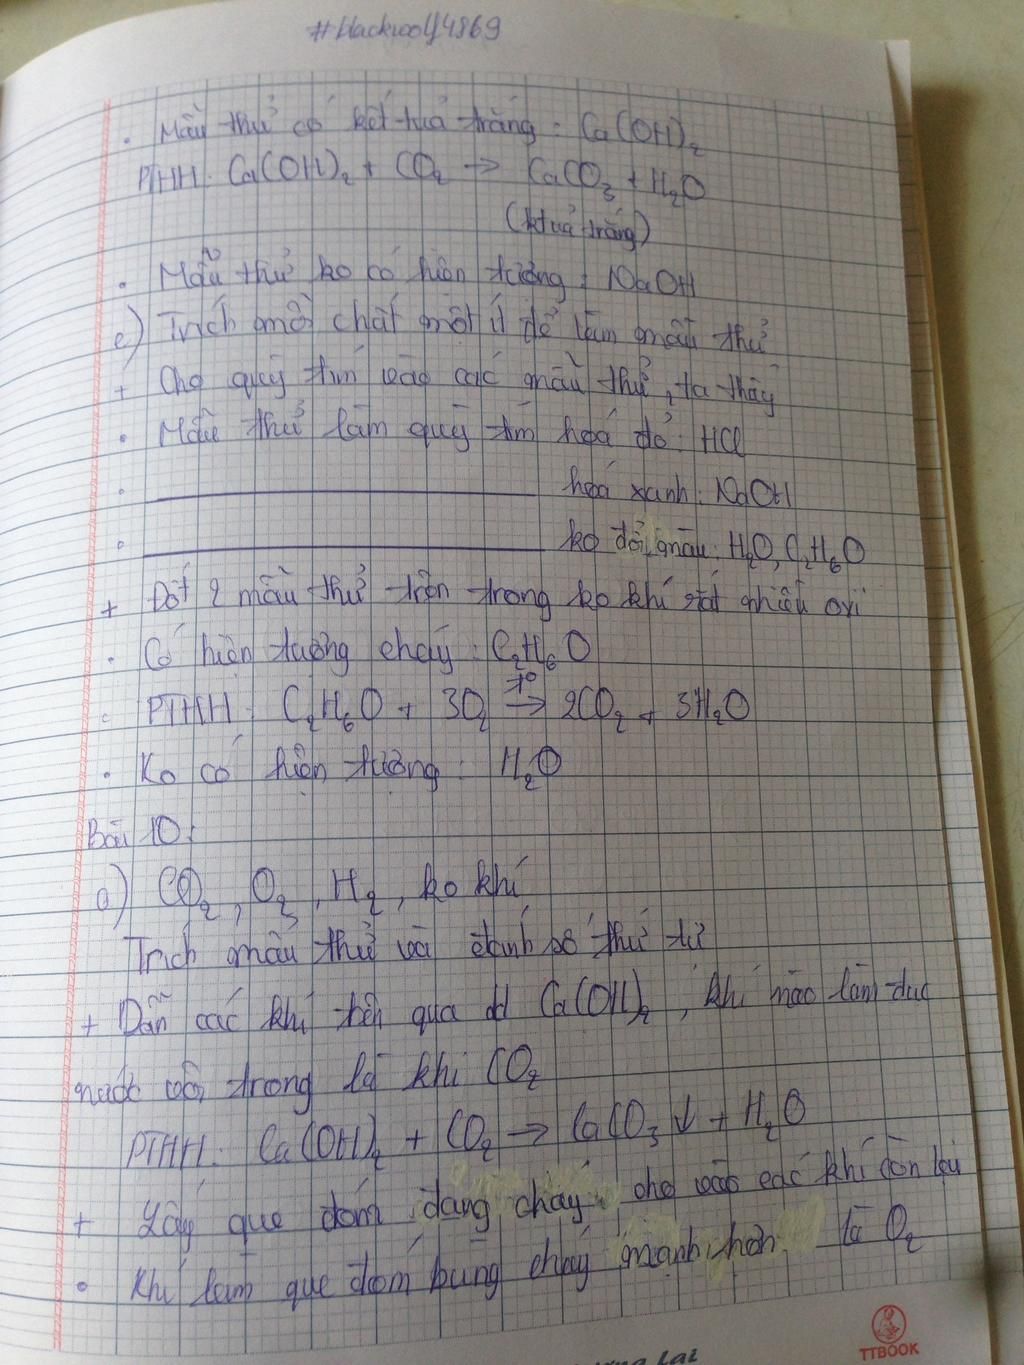 #Hackwolf4869
. Mẫu thử có kết tủa trắng : Ca(OH)₂
PTHH: Ca(OH)₂ + CO₂ → CaCO₃ + H₂O
(ktủa trắng)
. Mẫu thử ko có hiện tượng : NaOH
e) Trích mỗi chất một ít để làm mẫu thử
+ Cho quỳ tím vào các mẫu thử, ta thấy
. Mẫu thử làm quỳ tím hoá đỏ : HCl
. ____________ hoá xanh : NaOH
. ____________ ko đổi màu : H₂O, C₂H₆O
+ Đốt 2 mẫu thử trên trong ko khí rất nhiều oxi
. Có hiện tượng cháy : C₂H₆O
. PTHH : C₂H₆O + 3O₂ t°→ 2CO₂ + 3H₂O
. Ko có hiện tượng : H₂O
Bài 10:
a) CO₂, O₂, H₂, ko khí
Trích mẫu thử và đánh số thứ tự
+ Dẫn các khí trên qua dd Ca(OH)₂, khí nào làm đục
nước vôi trong là khí CO₂
PTHH: Ca(OH)₂ + CO₂ → CaCO₃ ↓ + H₂O
+ Lấy que đóm đang cháy cho vào các khí còn lại
. Khí làm que đóm bùng cháy mạnh hơn là O₂
TTBOOK